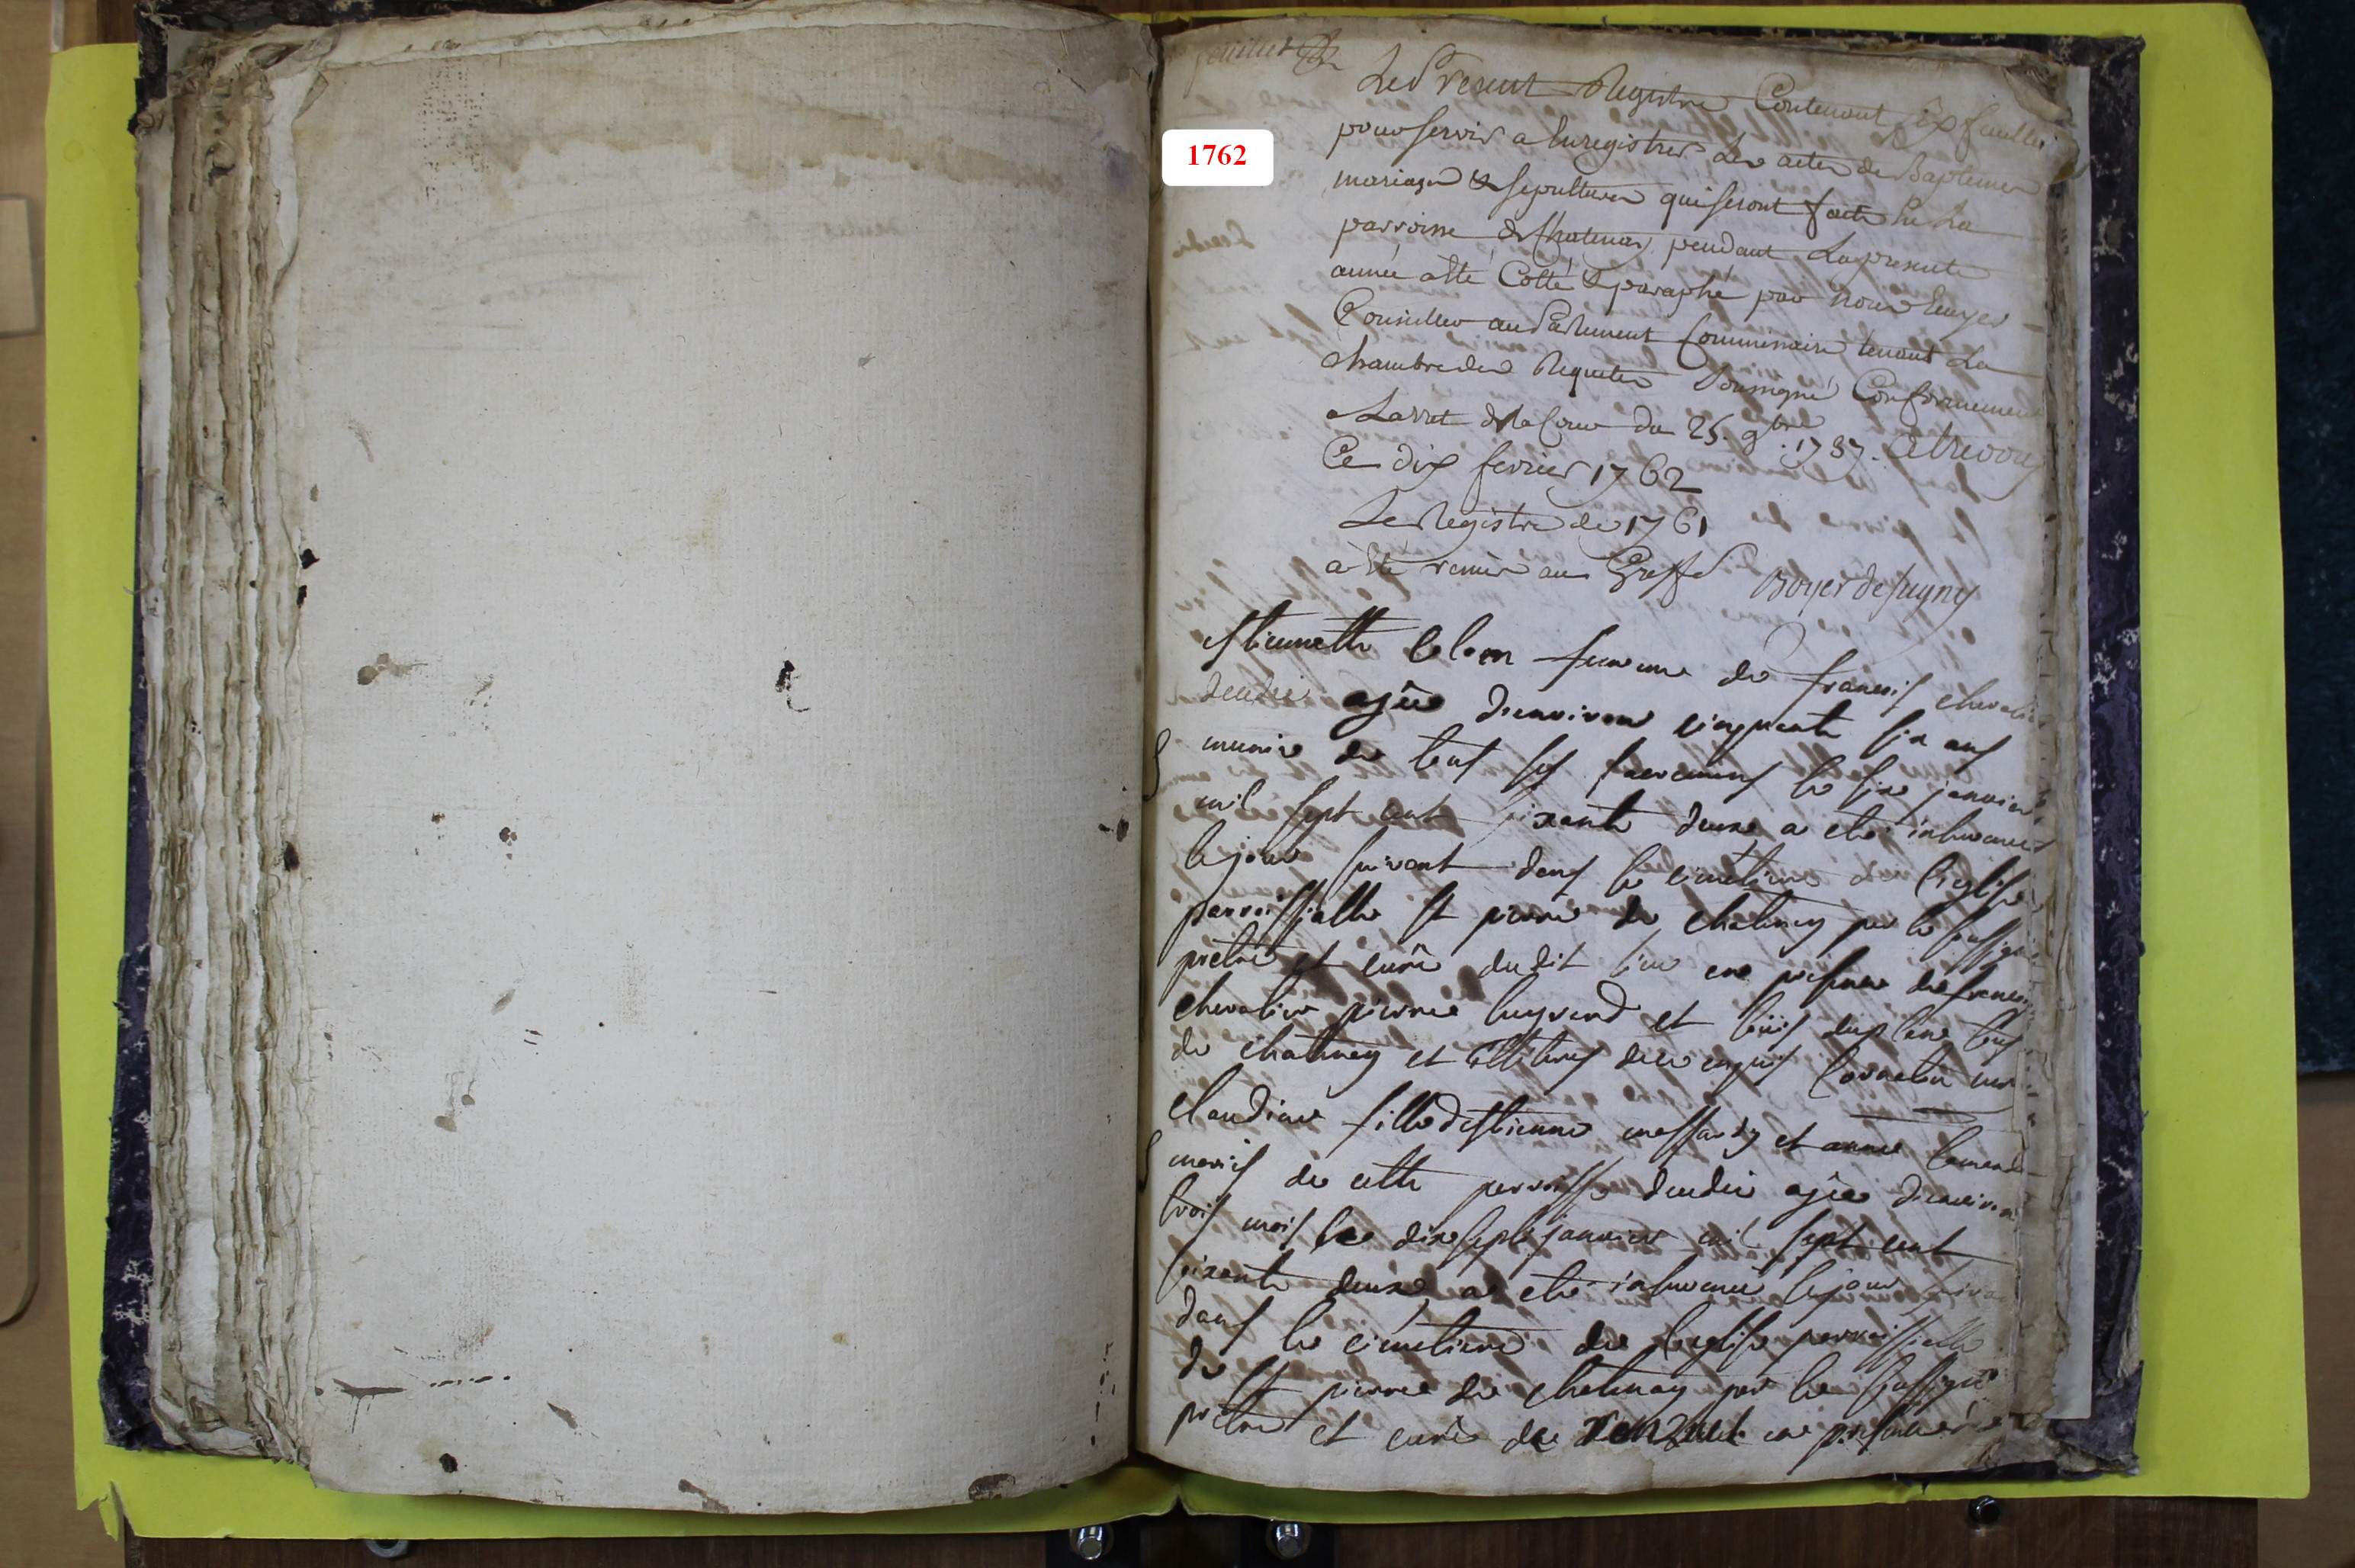 1762
feuillet
Le present Registre Contenant six feuilles
pour servir a Enregistrer Les actes de Baptemes
mariages & sepultures qui seront faits En La
parroisse de Chatenay pendant La presente
année a été Cotté & paraphé par nous Ecuyer
Conseiller au Parlement Commissaire tenant La
chambre des Requetes Soussigné Conformement
a Larret de la Cour du 25. 9bre 1737. A trevoux
Ce dix fevrier 1762
Le Registre de 1761
a été remis au Greffe Boyer de Sugny
estiennette Colon femme de francois chevalier
decedée agée d'environ cinquante six ans
munie de tous ses sacremens le six janvier
mil sept cent soixante deux a eté inhumée
le jour suivant dans le cimetiere de l'eglise
parroissialle st pierre de chatenay par le soussigné
pretre et curé dudit lieu en presence de francois
chevalier pierre et tous
de chatenay et illiterés de ce enquis
claudine fille d'estienne et anne
mariés de cette parroisse decedée agée d'environ
trois mois le dix sept janvier mil sept cent
soixante deux a eté inhumée le jour suivant
dans le cimetiere de l'eglise parroissialle
de st pierre de chatenay par le soussigné
pretre et curé de en presence